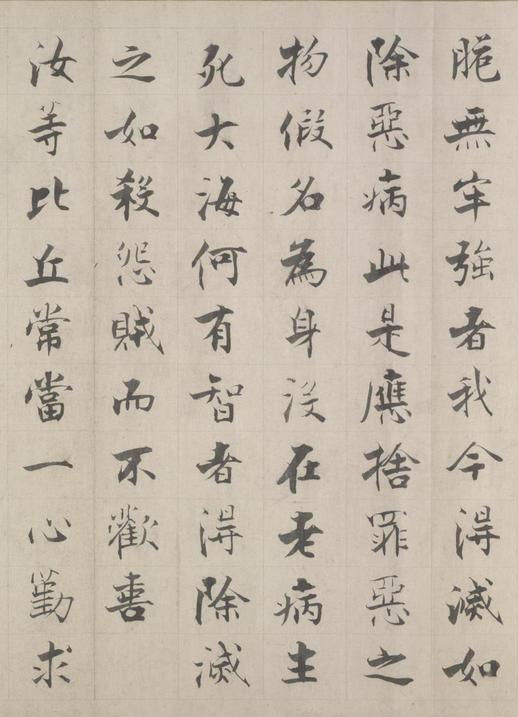 脆無牢強者我今得滅如
除惡病此是應捨罪惡之
物假名為身沒在老病生
死大海何有智者得除滅
之如殺怨賊而不歡喜
汝等比丘常當一心勤求